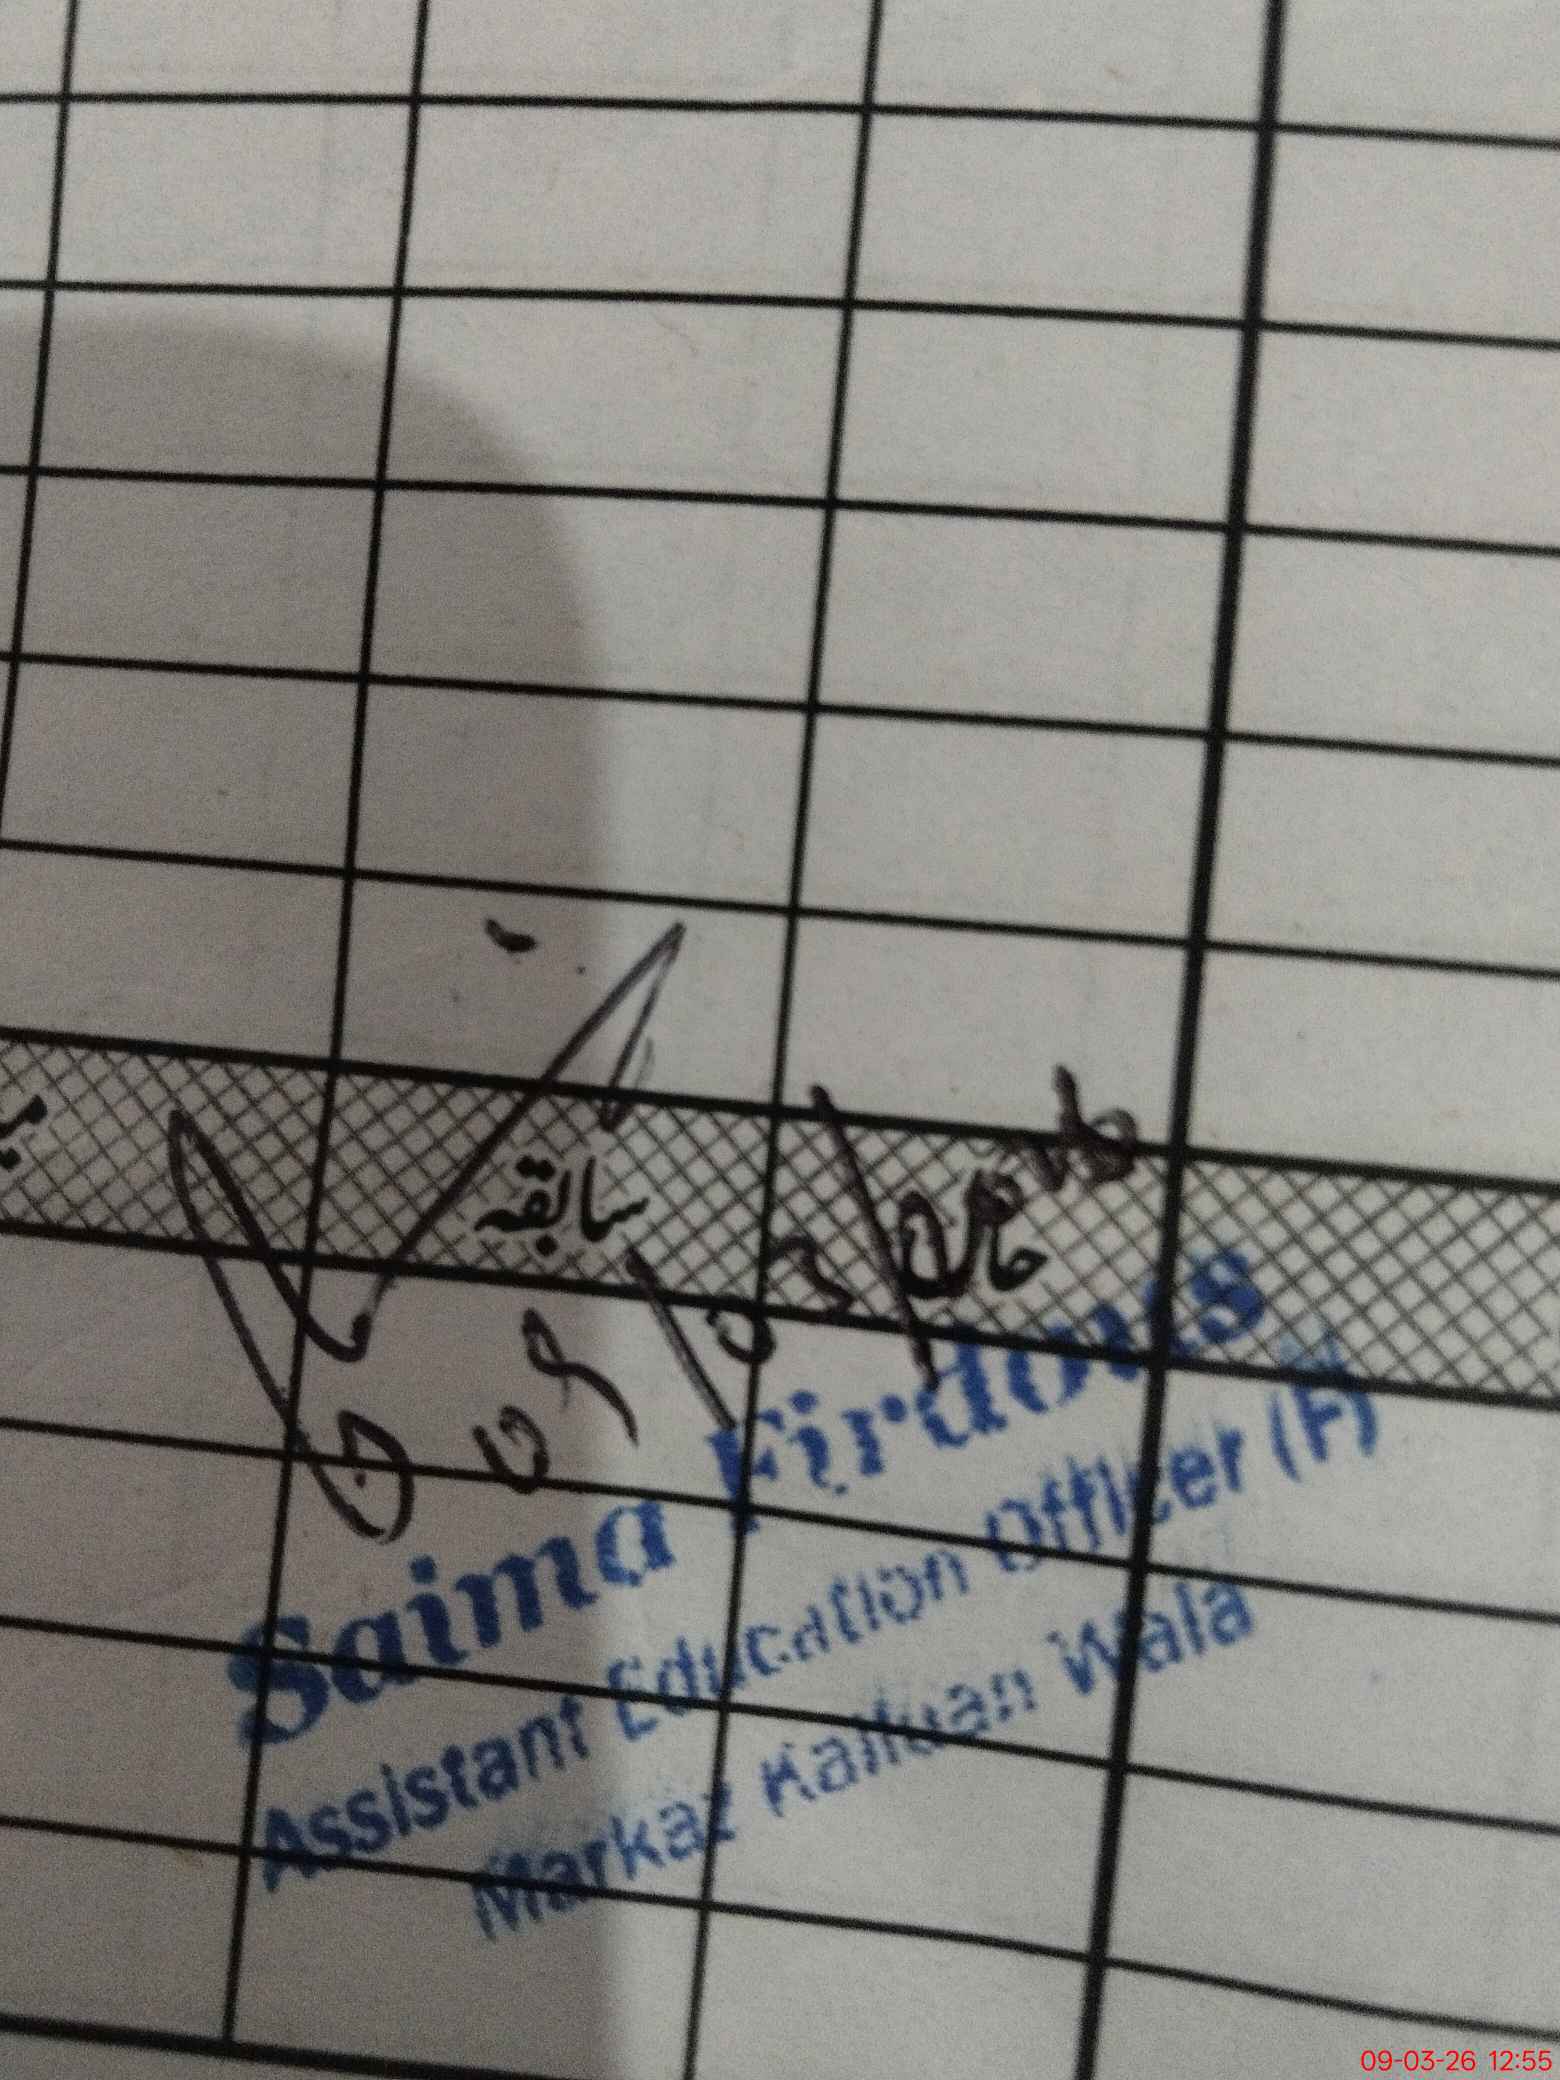 سابقہ
حال
09/03/2026
Saima Firdous
Assistant Education Officer (F)
Markaz Wala
09-03-26 12:55